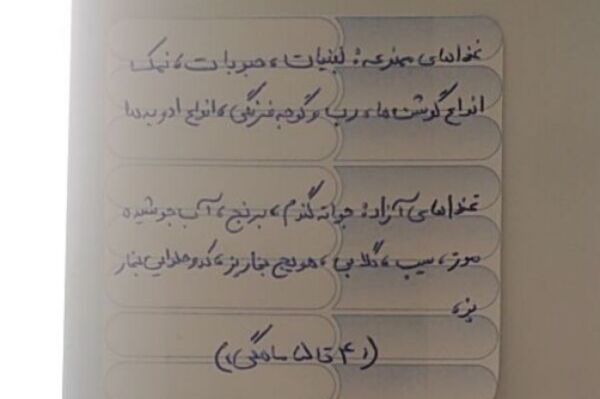 غذاهای ممنوعه: لبنیات، حبوبات، نمک
انواع گوشت‌ها، رب و گوجه فرنگی، انواع ادویه‌ها
غذاهای آزاد: جوانه گندم، برنج، آب جوشیده
موز، سیب، گلابی، هویج بخارپز، کدو حلوایی بخار
پز،
(۴ تا ۶ ماهگی)